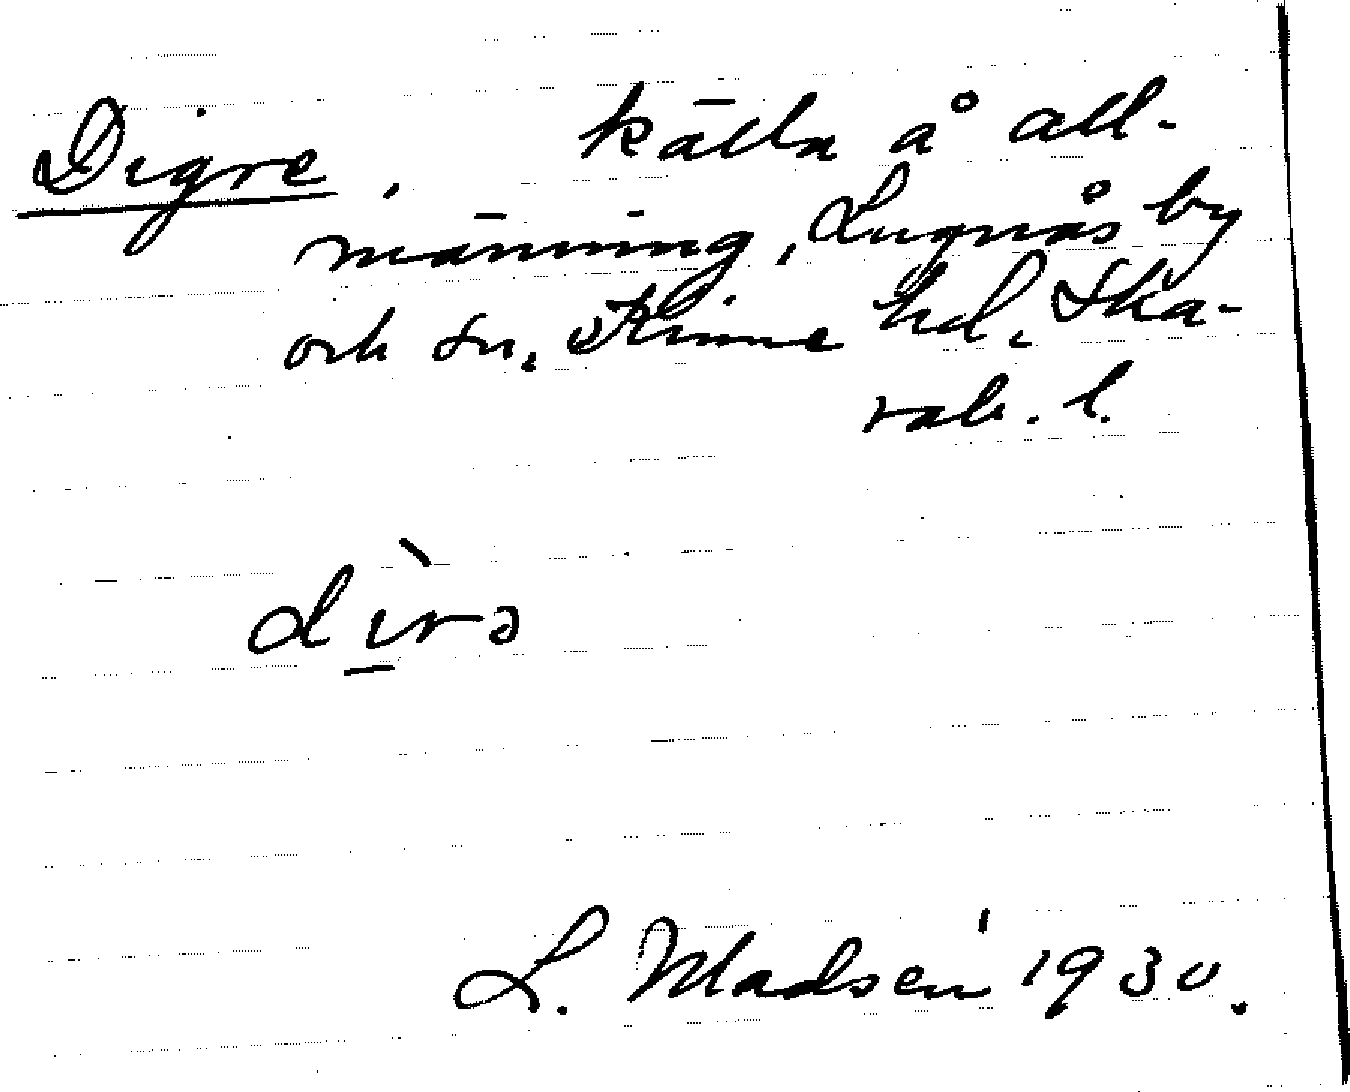 Digre, källa å all-
männing, Lugnås by
och sn. Kinne hd. Ska-
rab. l.
dı̱̀rə
L. Madsén 1930.